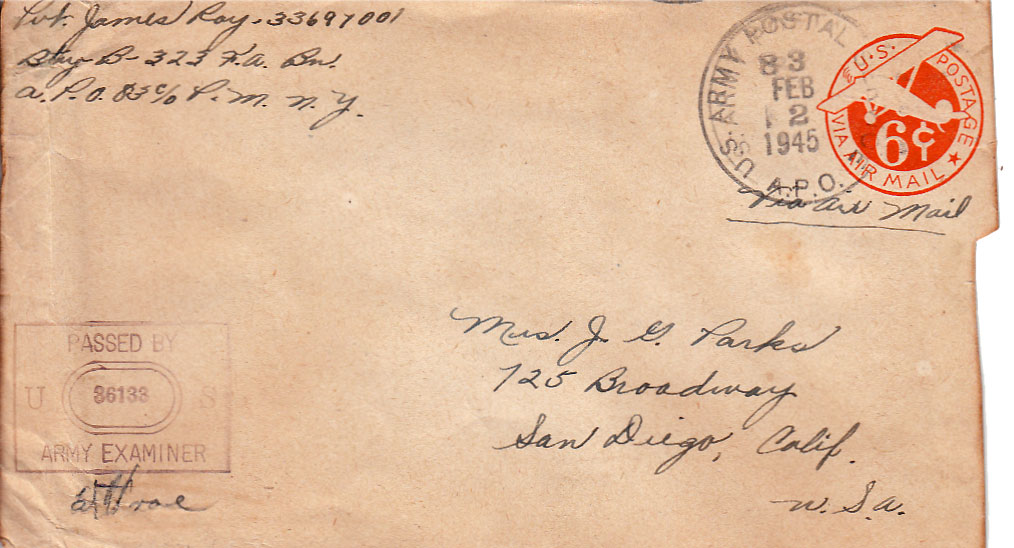 Pvt. James Ray - 33697001
Btry B - 323 F.A. Bn.
A.P.O. 83 c/o P.M. N.Y.
U.S. ARMY POSTAL
83
FEB
12
1945
A.P.O.
U.S. POSTAGE
6¢
VIA AIR MAIL
Via Air Mail
Mrs. J. G. Parks
725 Broadway
San Diego, Calif.
U.S.A.
PASSED BY
U 36133 S
ARMY EXAMINER